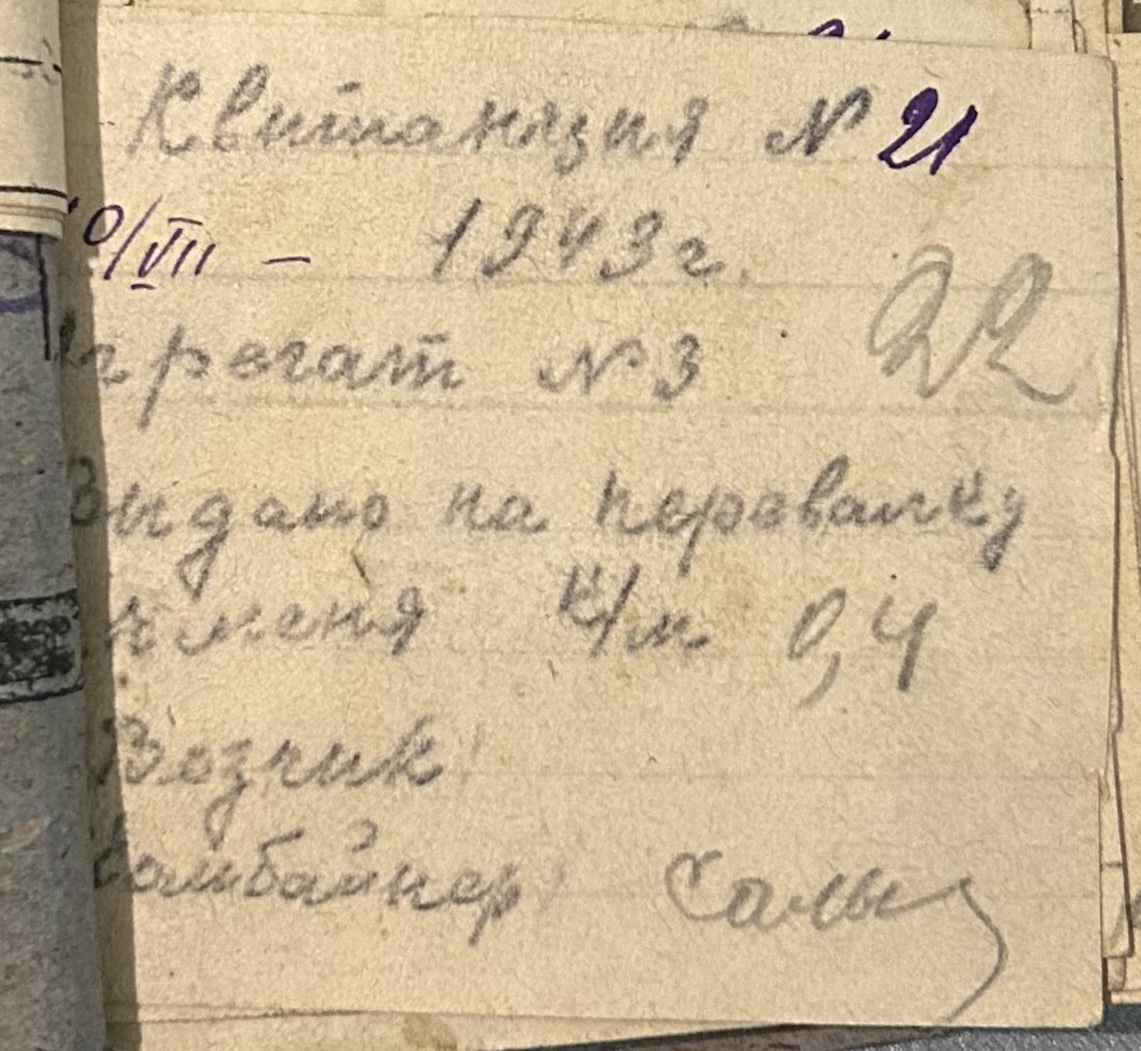 Квитанция № 21
10/VII - 1943 г.
Агрегат № 3 22
Выдано на перевалку
ячменя к/м 0,4
Возчик
Комбайнер